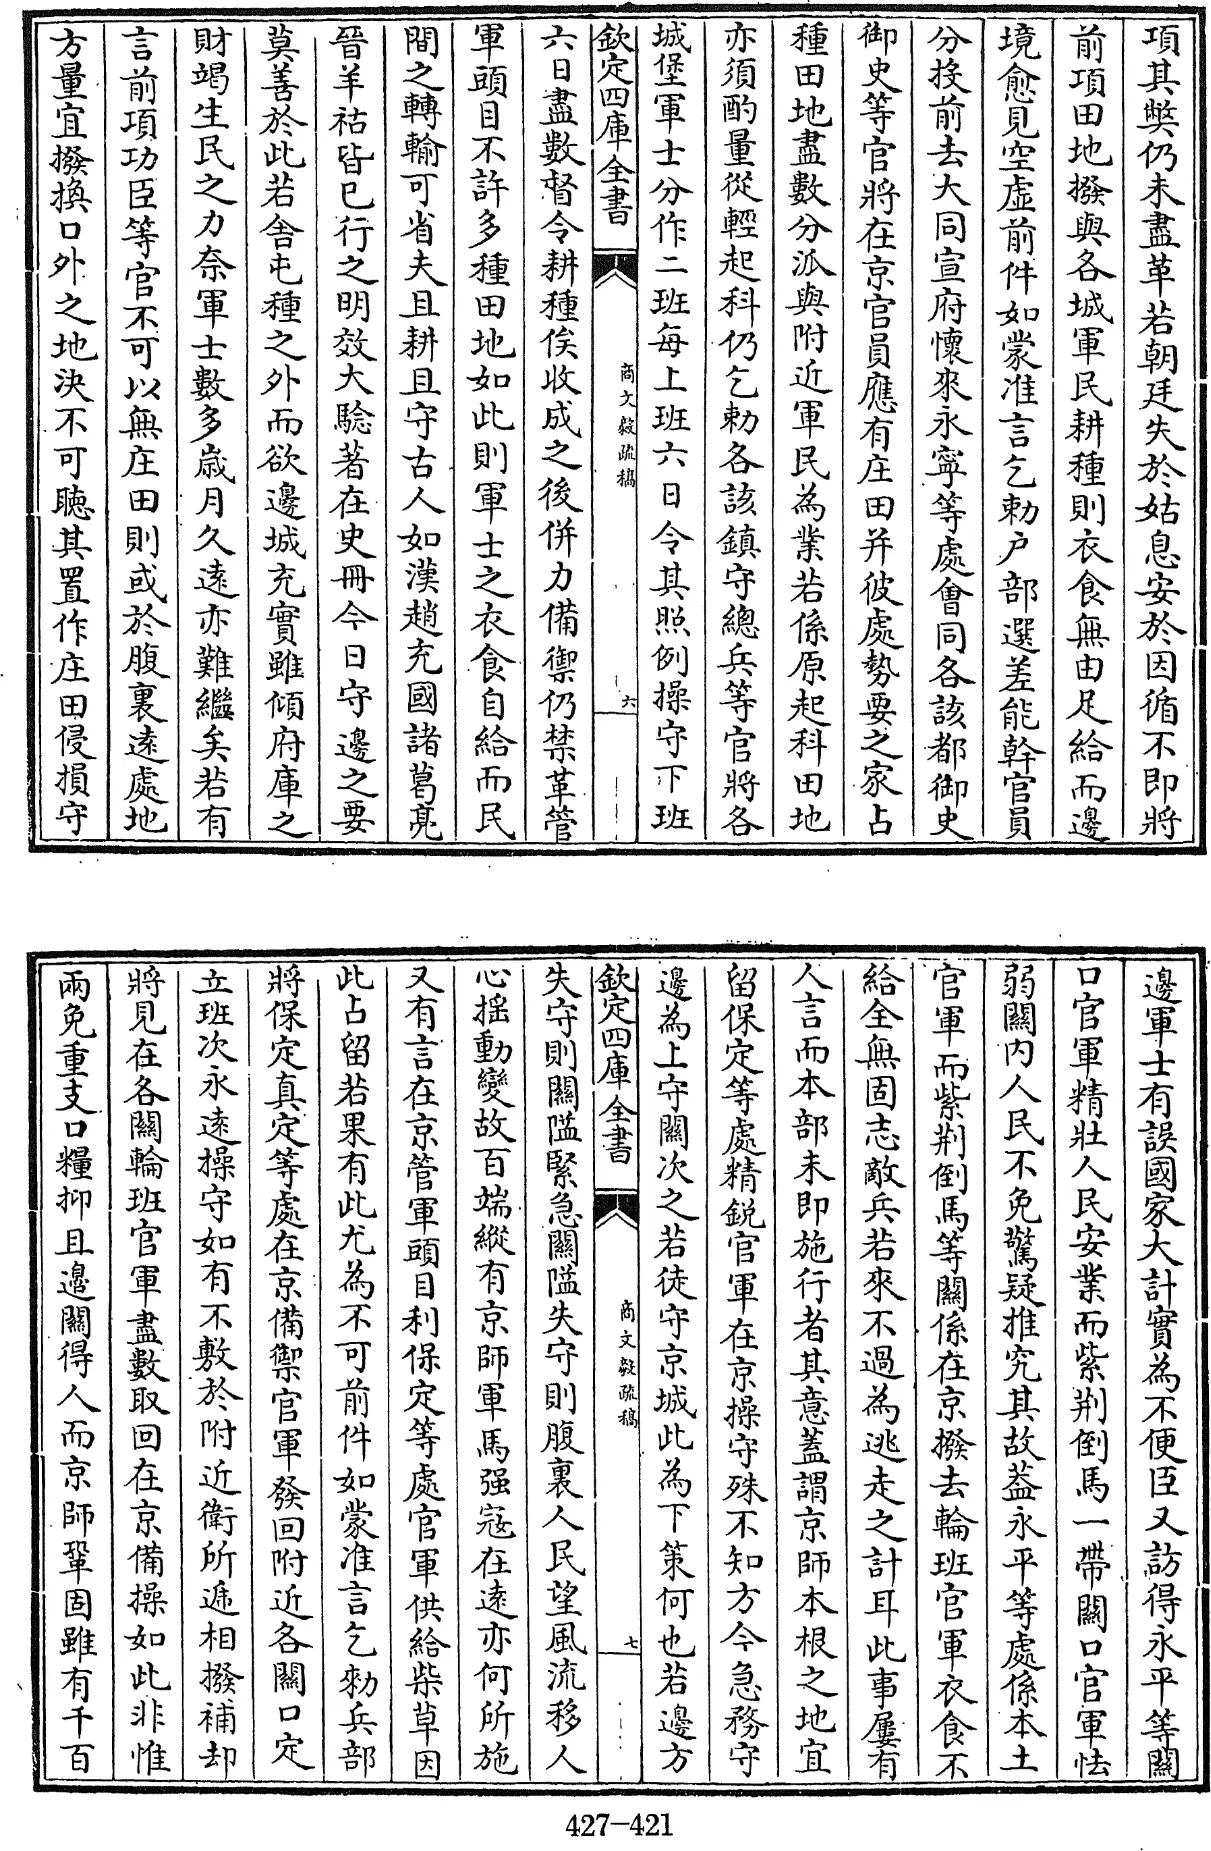 項其獘仍未盡革若朝廷失於姑息安於因循不即將
前項田地撥與各城軍民耕種則衣食無由足給而邊
境愈見空虛前件如蒙准言乞勅户部選差能幹官員
分投前去大同宣府懷來永寧等處會同各該都御史
御史等官將在京官員應有庄田并彼處勢要之家占
種田地盡數分派與附近軍民為業若係原起科田地
亦須酌量從輕起科仍乞勅各該鎮守總兵等官將各
城堡軍士分作二班每上班六日令其照例操守下班
欽定四庫全書
商文毅疏稿
六
六日盡數督令耕種俟收成之後併力備禦仍禁革管
軍頭目不許多種田地如此則軍士之衣食自給而民
間之轉輸可省夫且耕且守古人如漢趙充國諸葛亮
晉羊祜皆已行之明效大騐著在史冊今日守邊之要
莫善於此若舍屯種之外而欲邊城充實雖傾府庫之
財竭生民之力奈軍士數多歲月久遠亦難繼矣若有
言前項功臣等官不可以無庄田則或於腹裏遠處地
方量宜撥換口外之地決不可聽其置作庄田侵損守
邊軍士有誤國家大計實為不便臣又訪得永平等關
口官軍精壯人民安業而紫荆倒馬一帶關口官軍怯
弱關内人民不免驚疑推究其故葢永平等處係本土
官軍而紫荆倒馬等關係在京撥去輪班官軍衣食不
給全無固志敵兵若來不過為逃走之計耳此事屢有
人言而本部未即施行者其意蓋謂京師本根之地宜
留保定等處精鋭官軍在京操守殊不知方今急務守
邊為上守關次之若徒守京城此為下策何也若邊方
欽定四庫全書
商文毅疏稿
七
失守則關隘緊急關隘失守則腹裏人民望風流移人
心揺動變故百端縱有京師軍馬强冦在遠亦何所施
又有言在京管軍頭目利保定等處官軍供給柴草因
此占留若果有此尤為不可前件如蒙准言乞勅兵部
將保定真定等處在京備禦官軍發回附近各關口定
立班次永遠操守如有不敷於附近衛所逓相撥補却
將見在各關輪班官軍盡數取回在京備操如此非惟
兩免重支口糧抑且邉關得人而京師鞏固雖有千百
427-421